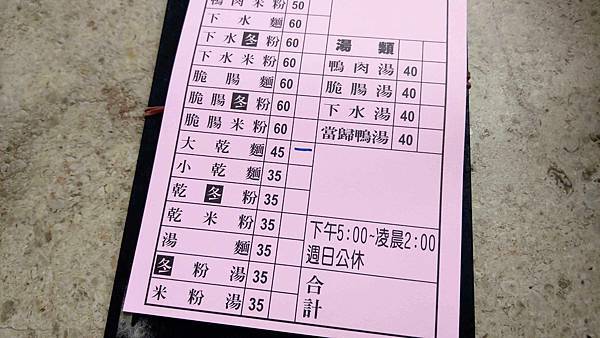 鴨肉米粉 50
下水麵 60
下水冬粉 60
下水米粉 60
脆腸麵 60
脆腸冬粉 60
脆腸米粉 60
大乾麵 45 一
小乾麵 35
乾冬粉 35
乾米粉 35
湯麵 35
冬粉湯 35
米粉湯 35
湯類
鴨肉湯 40
脆腸湯 40
下水湯 40
當歸鴨湯 40
下午5:00~凌晨2:00
週日公休
合計